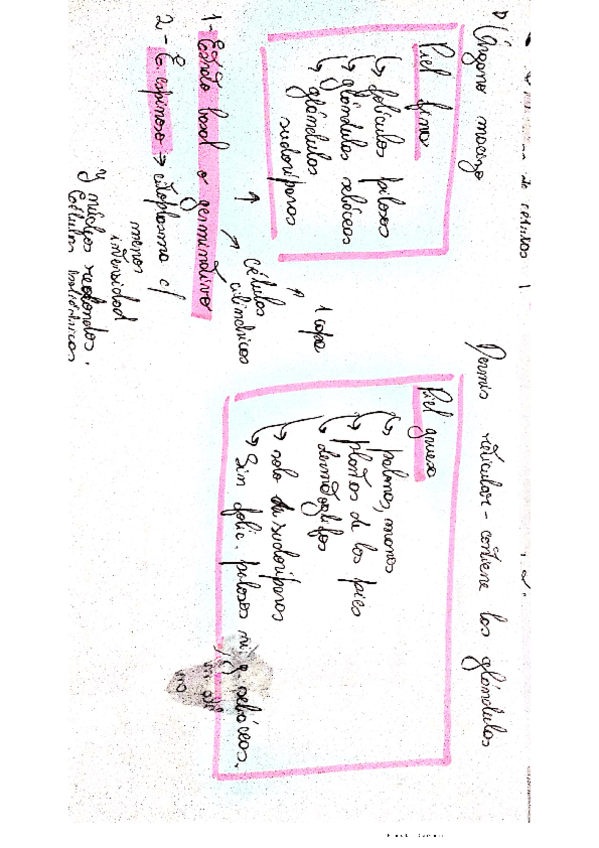 de células
Órgano macizo
Dermis reticular - contiene las glándulas
Piel fina
↳ folículos pilosos
↳ glándulas sebáceas
↳ glándulas
sudoríparas
Piel gruesa
↳ palmas, manos
↳ plantas de los pies
↳ dermatoglifos
↳ solo g. sudoríparas
↳ Sin folic. pilosos ni g. sebáceas.
1 capa
↑
células
cilíndricas
1- Estrato basal o germinativo
2- E. espinoso → citoplasma c/
menos
intensidad
y núcleos redondos.
Células